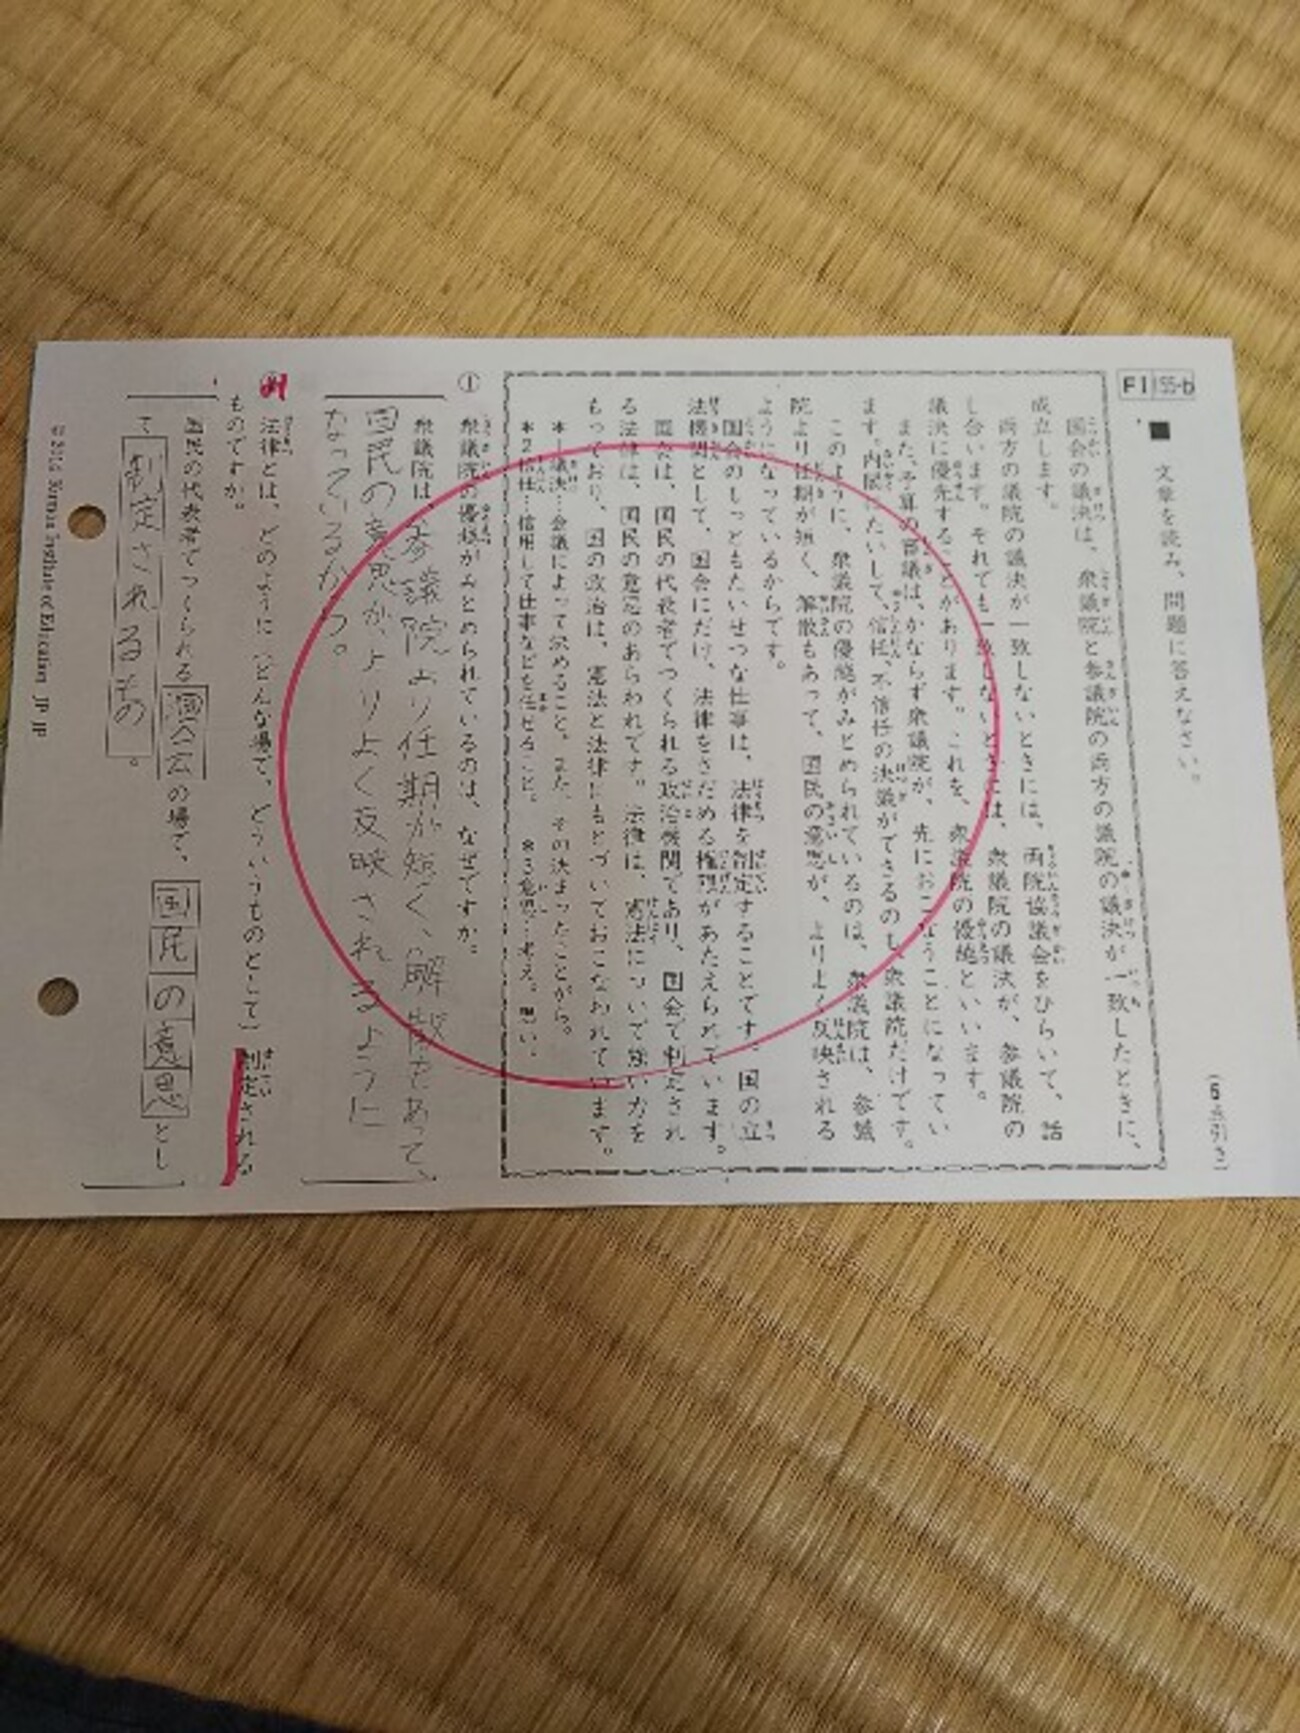 F I 155-b
■ 文章を読み、問題に答えなさい。
国会の議決は、衆議院と参議院の両方の議院の議決が一致したときに、
成立します。
両方の議院の議決が一致しないときには、両院協議会をひらいて、話
し合います。それでも一致しないときには、衆議院の議決が、参議院の
議決に優先することがあります。これを、衆議院の優越といいます。
また、予算の審議は、かならず衆議院が、先におこなうことになってい
ます。内閣にたいして、信任、不信任の決議ができるのも衆議院だけです。
このように、衆議院の優越がみとめられているのは、衆議院は、参議
院より任期が短く、解散もあって、国民の意思が、よりよく反映される
ようになっているからです。
国会のしごとでもっともたいせつな仕事は、法律を制定することです。国の立
法機関として、国会にだけ、法律をさだめる権限があたえられています。
国会は、国民の代表者でつくられる政治機関であり、国会で制定され
る法律は、国民の意思のあらわれです。法律は、憲法についで強い力を
もっており、国の政治は、憲法と法律にもとづいておこなわれています。
*1議決…会議によって決めること。また、その決まったことがら。
*2信任…信用して仕事などを任せること。 *3意思…考え。思い。
① 衆議院の優越がみとめられているのは、なぜですか。
衆議院は、参議院より任期が短く、解散もあって、
国民の意思が、よりよく反映されるように
なっているから。
法律とは、どのように(どんな場で、どういうものとして)制定される
ものですか。
国民の代表者でつくられる国会の場で、国民の意思とし
て制定されるもの。
Kumon Institute of Education JP JP